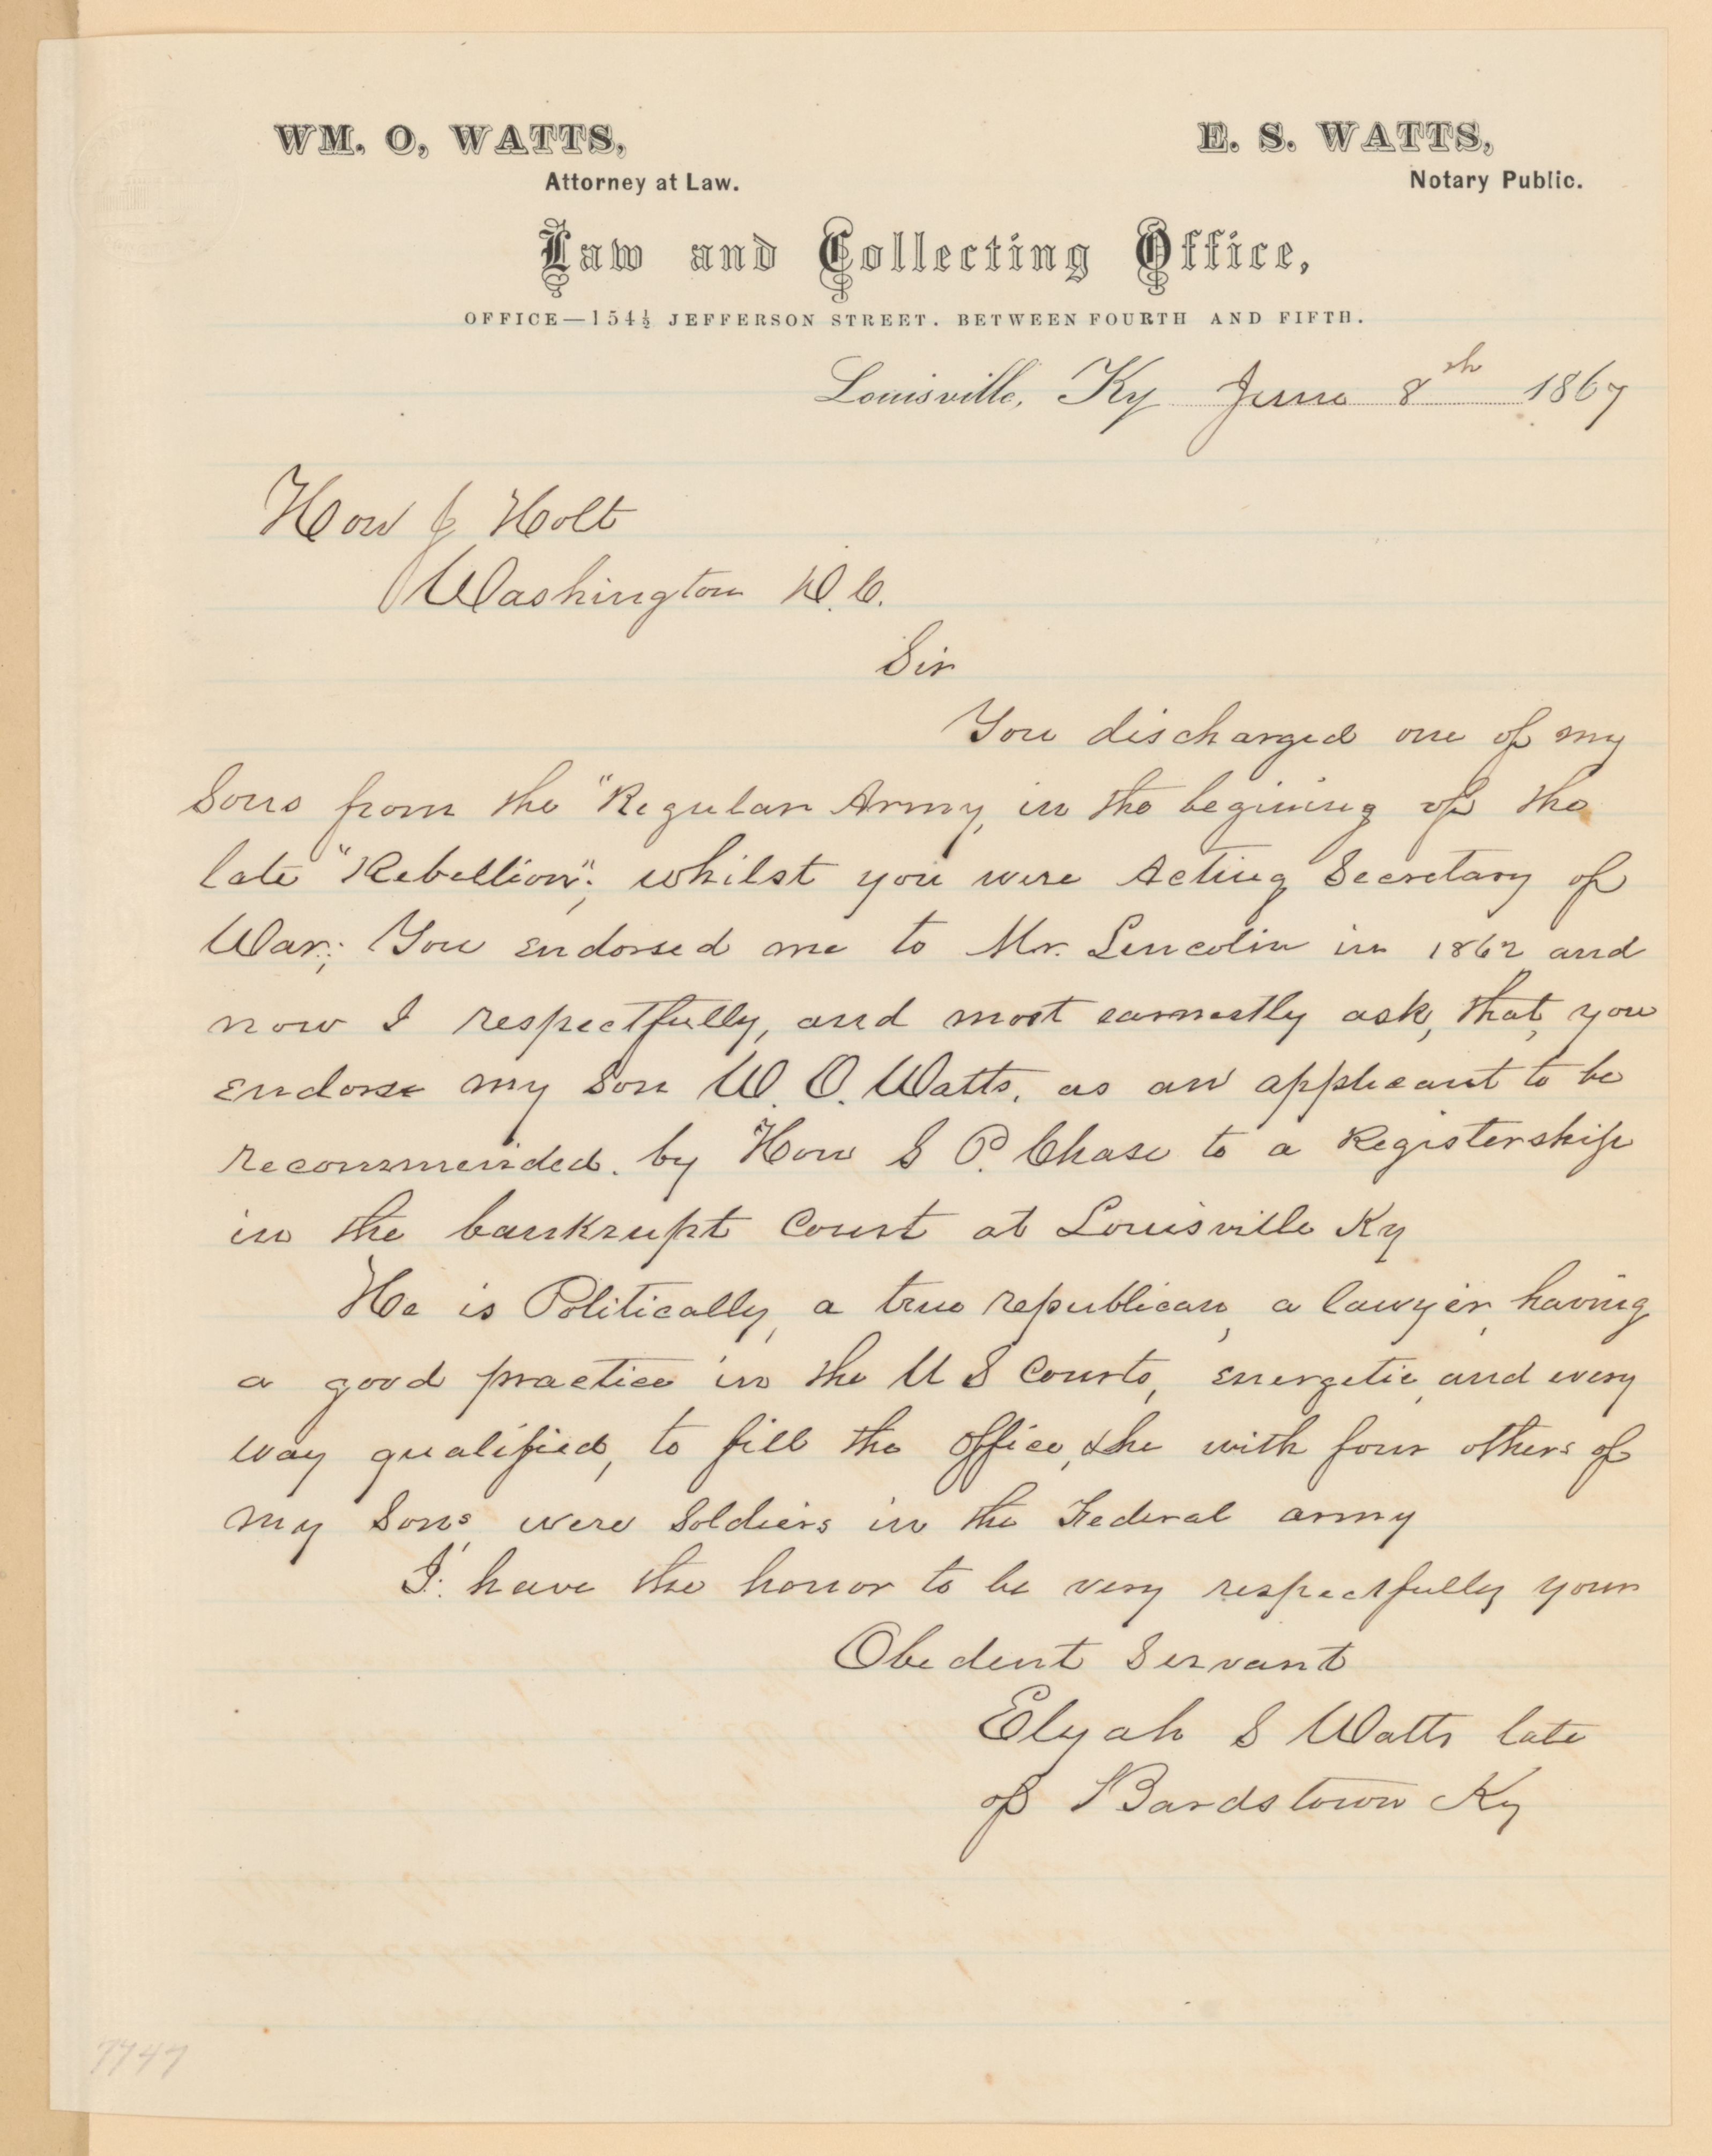 WM. O, WATTS,
Attorney at Law.
E. S. WATTS,
Notary Public.
Law and Collecting Office,
OFFICE—154½ JEFFERSON STREET. BETWEEN FOURTH AND FIFTH.
Louisville, Ky June 8th 1867
Hon J Holt
Washington D.C.
Sir
You discharged one of my
Sons from the "Regular Army, in the begining of the
late "Rebellion"; whilst you were Acting Secretary of
War; You endorsed me to Mr. Lincolin in 1862 and
now I respectfully, and most earnestly ask, that, you
endorse my Son W. O. Watts, as an applicant to be
recommended. by Hon S P. Chase to a Registership
in the bankrupt Court at Louisville Ky
He is Politically, a true republican, a lawyer, having
a good practice in the U S Courts, energetic, and every
way qualified, to fill the office, & he with four others of
my Sons were Soldiers in the Federal army
I have the honor to be very respectfully your
Obedent Servant
Elijah S Watts late
of Bardstown Ky
7747